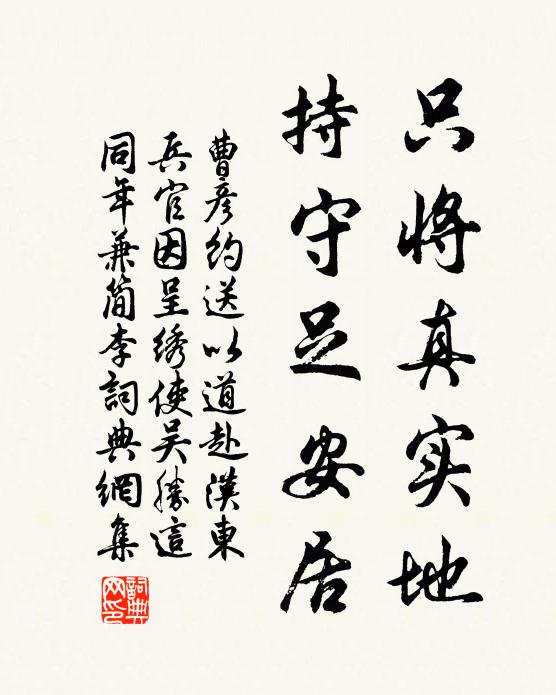 只将真实地
持守足安居
曹彦约送以道赴漢東
兵官因呈绣使吴勝這
同年兼简李詞典網集
詞典
网印